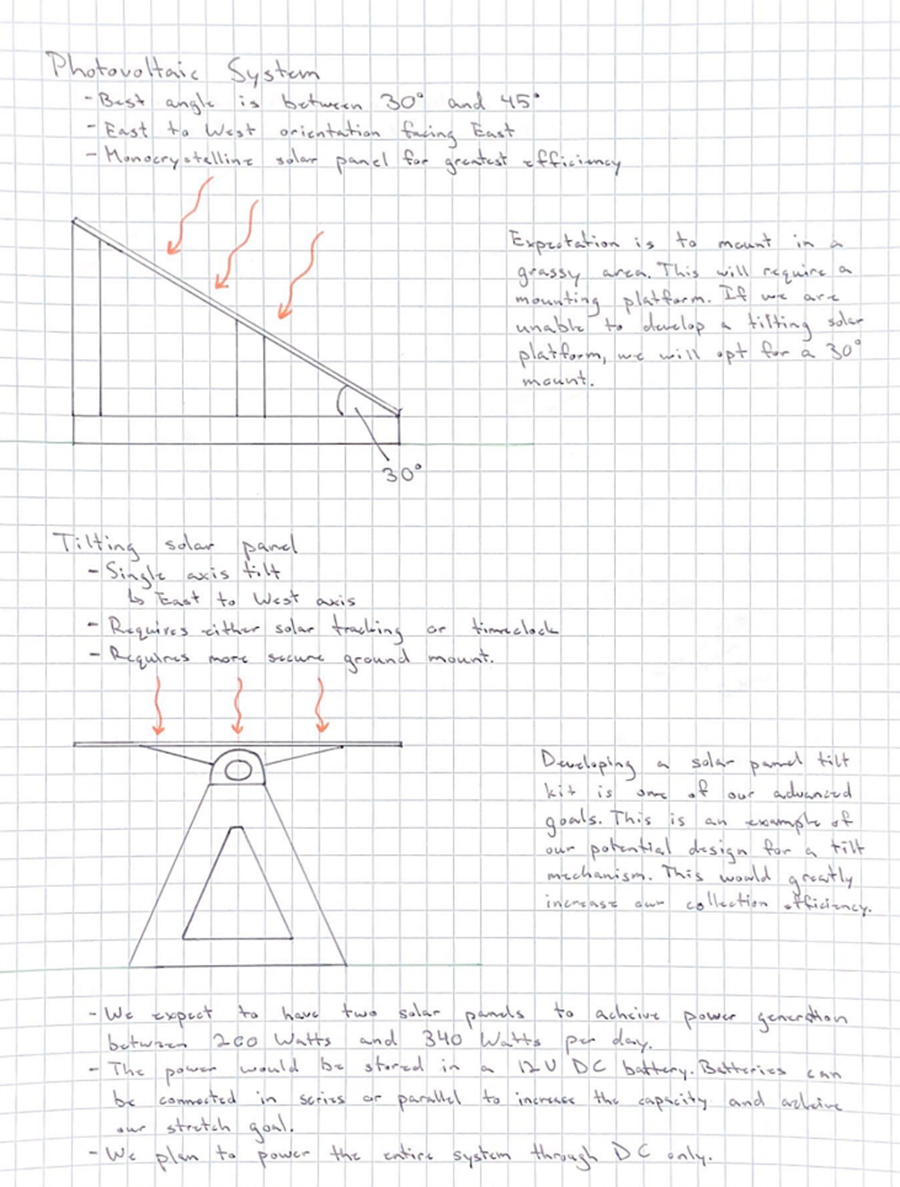 Photovoltaic System
- Best angle is between 30° and 45°
- East to West orientation facing East
- Monocrystalline solar panel for greatest efficiency
Expectation is to mount in a
grassy area. This will require a
mounting platform. If we are
unable to develop a tilting solar
platform, we will opt for a 30°
mount.
30°
Tilting solar panel
- Single axis tilt
↳ East to West axis
- Requires either solar tracking or timeclock
- Requires more secure ground mount.
Developing a solar panel tilt
kit is one of our advanced
goals. This is an example of
our potential design for a tilt
mechanism. This would greatly
increase our collection efficiency.
- We expect to have two solar panels to acheive power generation
between 200 Watts and 340 Watts per day.
- The power would be stored in a 12V DC battery. Batteries can
be connected in series or parallel to increase the capacity and acheive
our stretch goal.
- We plan to power the entire system through DC only.